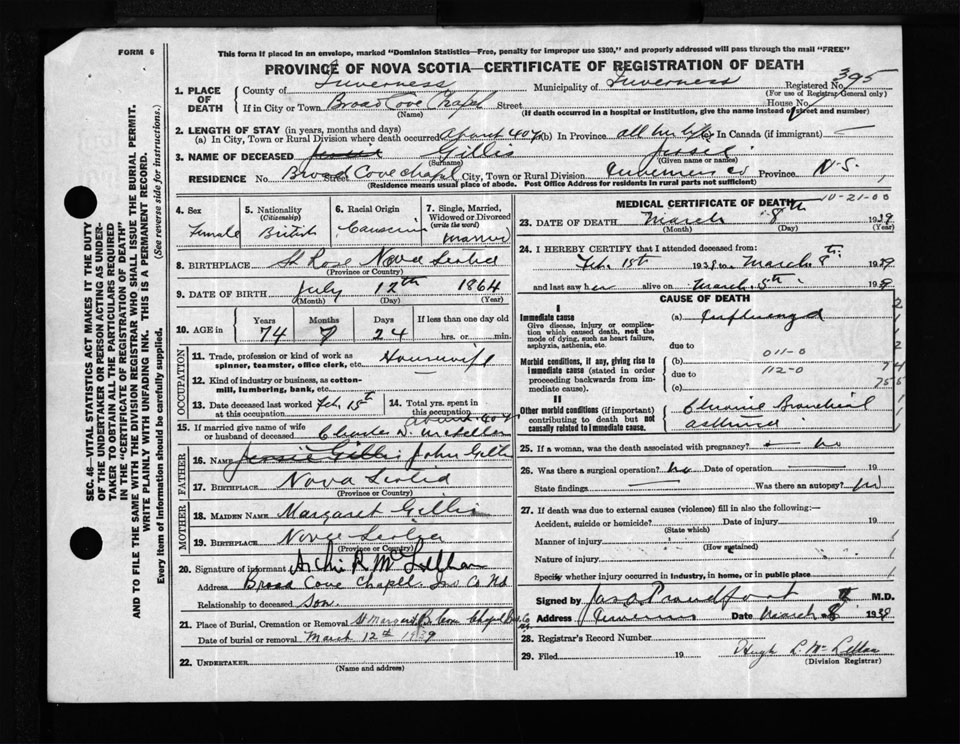 FORM 6
This form if placed in an envelope, marked "Dominion Statistics—Free, penalty for improper use $300," and properly addressed will pass through the mail "FREE"
PROVINCE OF NOVA SCOTIA—CERTIFICATE OF REGISTRATION OF DEATH
1. PLACE OF DEATH County of Inverness Municipality of Inverness Registered No. 395
(For use of Registrar-General only)
If in City or Town Broad Cove Chapel Street House No.
(Name) (If death occurred in a hospital or institution, give the name instead of street and number)
2. LENGTH OF STAY (in years, months and days)
(a) In City, Town or Rural Division where death occurred about 40 y (b) In Province all her life (c) In Canada (if immigrant) —
3. NAME OF DECEASED Jessie Gillis Jessie
(Surname) (Given name or names)
RESIDENCE No. Broad Cove chapel Street City, Town or Rural Division Inverness co Province N-S.
(Residence means usual place of abode. Post Office Address for residents in rural parts not sufficient)
4. Sex Female
5. Nationality (Citizenship) British
6. Racial Origin
7. Single, Married, Widowed or Divorced (write the word) married
8. BIRTHPLACE St Rose Nova Scotia
(Province or Country)
9. DATE OF BIRTH July 12th 1864
(Month) (Day) (Year)
10. AGE in Years Months Days If less than one day old
74 7 24 hrs. or min.
OCCUPATION
11. Trade, profession or kind of work as spinner, teamster, office clerk, etc. Housewife
12. Kind of industry or business, as cotton-mill, lumbering, bank, etc. —
13. Date deceased last worked at this occupation Feb. 15th
14. Total yrs. spent in this occupation about 40 y
15. If married give name of wife or husband of deceased Charles D. McLellan
FATHER
16. NAME Jessie Gillis John Gillis
17. BIRTHPLACE Nova Scotia
(Province or Country)
MOTHER
18. MAIDEN NAME Margaret Gillis
19. BIRTHPLACE Nova Scotia
(Province or Country)
20. Signature of informant Archie R McLellan
Address Broad Cove Chapel Inv Co NS
Relationship to deceased son.
21. Place of Burial, Cremation or Removal St Margaret B. Cove Chapel Inv. Co NS
Date of burial or removal March 12th 1939
22. UNDERTAKER
(Name and address)
MEDICAL CERTIFICATE OF DEATH
10-21-00
23. DATE OF DEATH March 8th 1939
(Month) (Day) (Year)
24. I HEREBY CERTIFY that I attended deceased from:
Feb. 15th 1938 to March 8th. 1939
and last saw her alive on March 5th. 1939
CAUSE OF DEATH
I
Immediate cause
Give disease, injury or complication which caused death, not the mode of dying, such as heart failure, asphyxia, asthenia, etc.
(a)
due to
Morbid conditions, if any, giving rise to immediate cause (stated in order proceeding backwards from immediate cause).
(b) 011-0
due to 112-0
(c)
II
Other morbid conditions (important) contributing to death but not causally related to immediate cause.
Chronic Bronchial
asthma
25. If a woman, was the death associated with pregnancy? no
26. Was there a surgical operation? no Date of operation — 19
State findings Was there an autopsy? no
27. If death was due to external causes (violence) fill in also the following:—
Accident, suicide or homicide? Date of injury 19
(State which)
Manner of injury
(How sustained)
Nature of injury
Specify whether injury occurred in industry, in home, or in public place
Signed by Jas A Proudfoot M.D.
Address Inverness Date March 8th 1939
28. Registrar's Record Number
29. Filed 19 Hugh L. McLellan
(Division Registrar)
SEC. 46—VITAL STATISTICS ACT MAKES IT THE DUTY
OF THE UNDERTAKER OR PERSON ACTING AS UNDER-
TAKER TO OBTAIN ALL THE PARTICULARS REQUIRED
IN THE "CERTIFICATE OF REGISTRATION OF DEATH"
AND TO FILE THE SAME WITH THE DIVISION REGISTRAR WHO SHALL ISSUE THE BURIAL PERMIT.
WRITE PLAINLY WITH UNFADING INK. THIS IS A PERMANENT RECORD.
Every item of information should be carefully supplied. (See reverse side for instructions.)